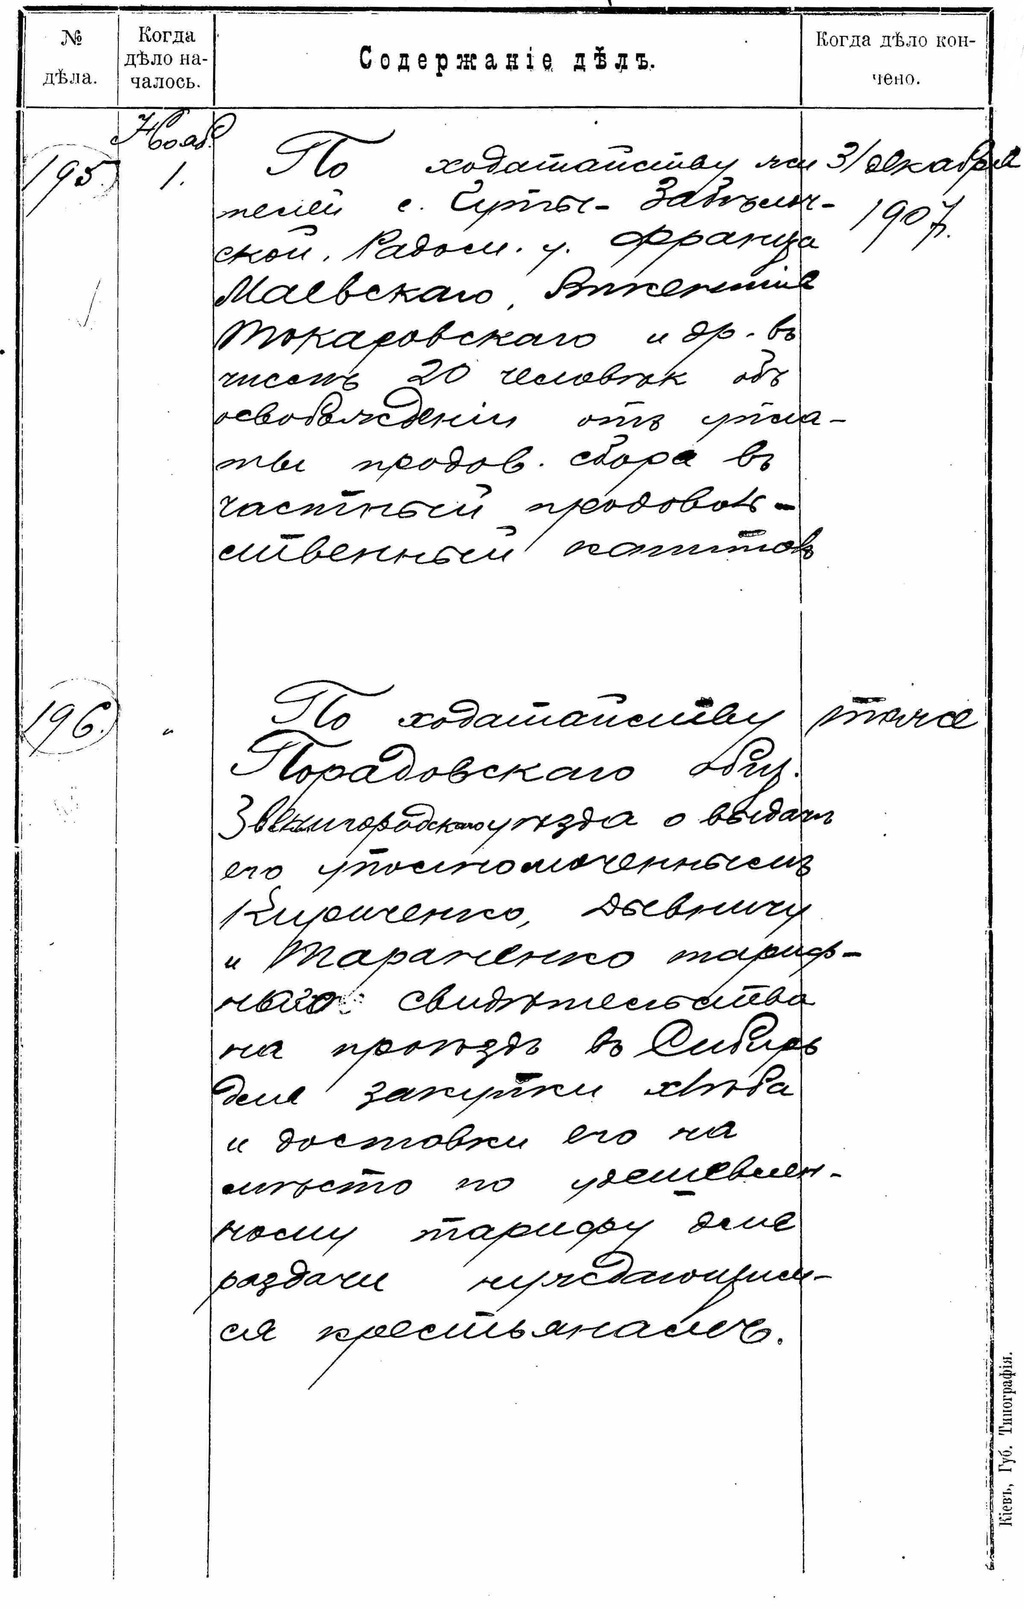 № дѣла.
Когда дѣло началось.
Содержаніе дѣлъ.
Когда дѣло кончено.
Нояб.
195. 1. По ходатайству жи- 31 декабря
телей с. Забѣлоч- 1907.
ской, Радом. у. Франца
Маевскаго, Викентія
Токаровскаго и др. въ
числѣ 20 человѣк объ
освобожденіи отъ упла-
ты продов. сбора въ
частный продоволь-
ственный капиталъ
196. " По ходатайству тоже
Порадовскаго общ.
Звенигородскаго уѣзда о выдачѣ
его уполномоченнымъ
Кириченко,
и Тараненко тариф-
наго свидѣтельства
на проѣздъ въ Сибирь
для закупки хлѣба
и доставки его на
мѣсто по удешевлен-
ному тарифу для
раздачи нуждающим-
ся крестьянамъ.
Кіевъ, Губ. Типографія.